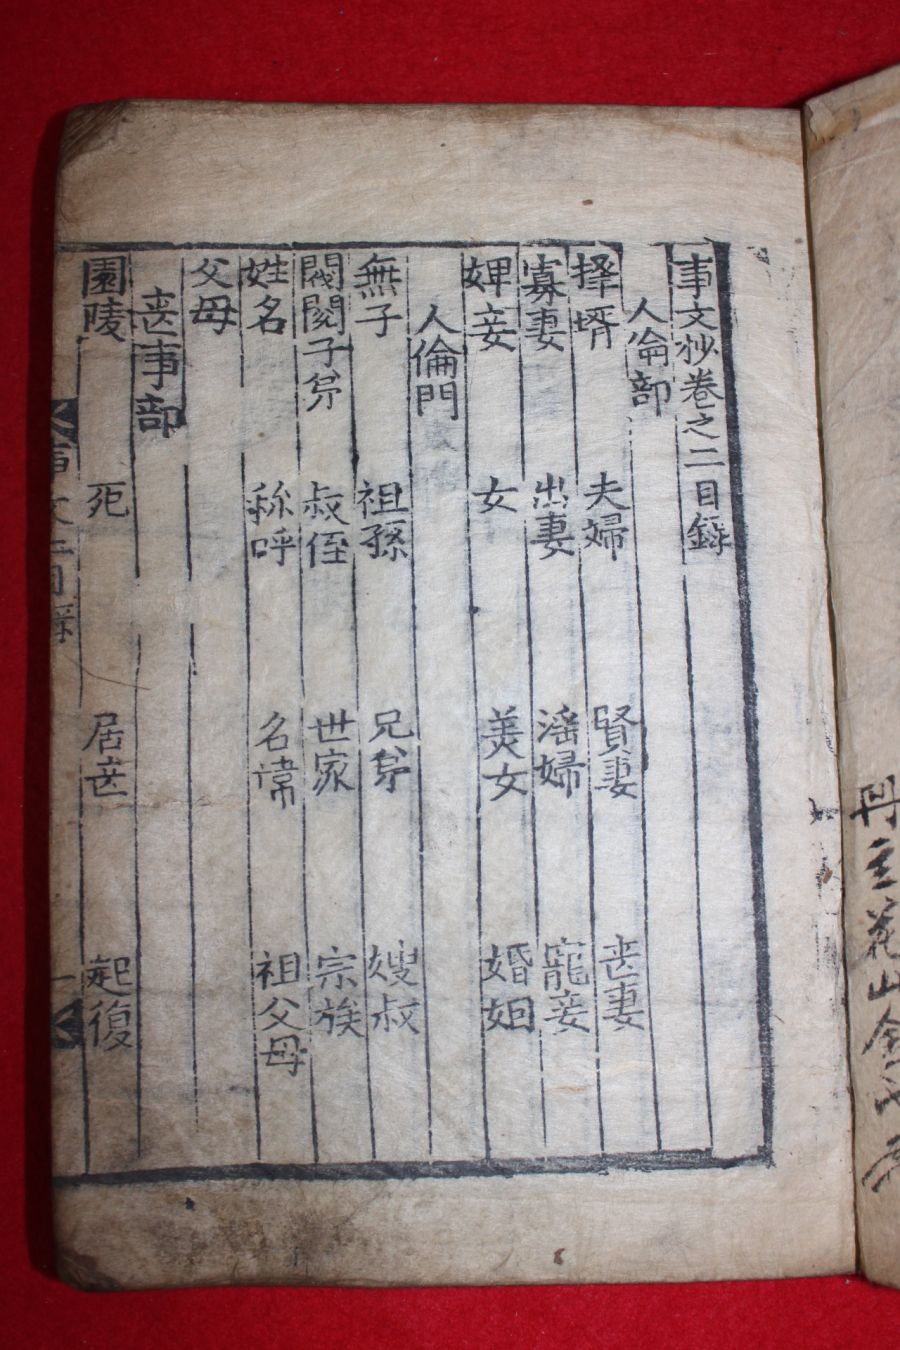 事文抄卷之二目錄
人倫部
擇壻 夫婦 賢妻 丧妻
寡妻 出妻 淫婦 寵妾
婢妾 女 美女 婚姻
人倫門
無子 祖孫 兄弟 嫂叔
閥閱子弟 叔侄 世家 宗族
姓名 稱呼 名諱 祖父母
父母
丧事部
園陵 死 居丧 起復